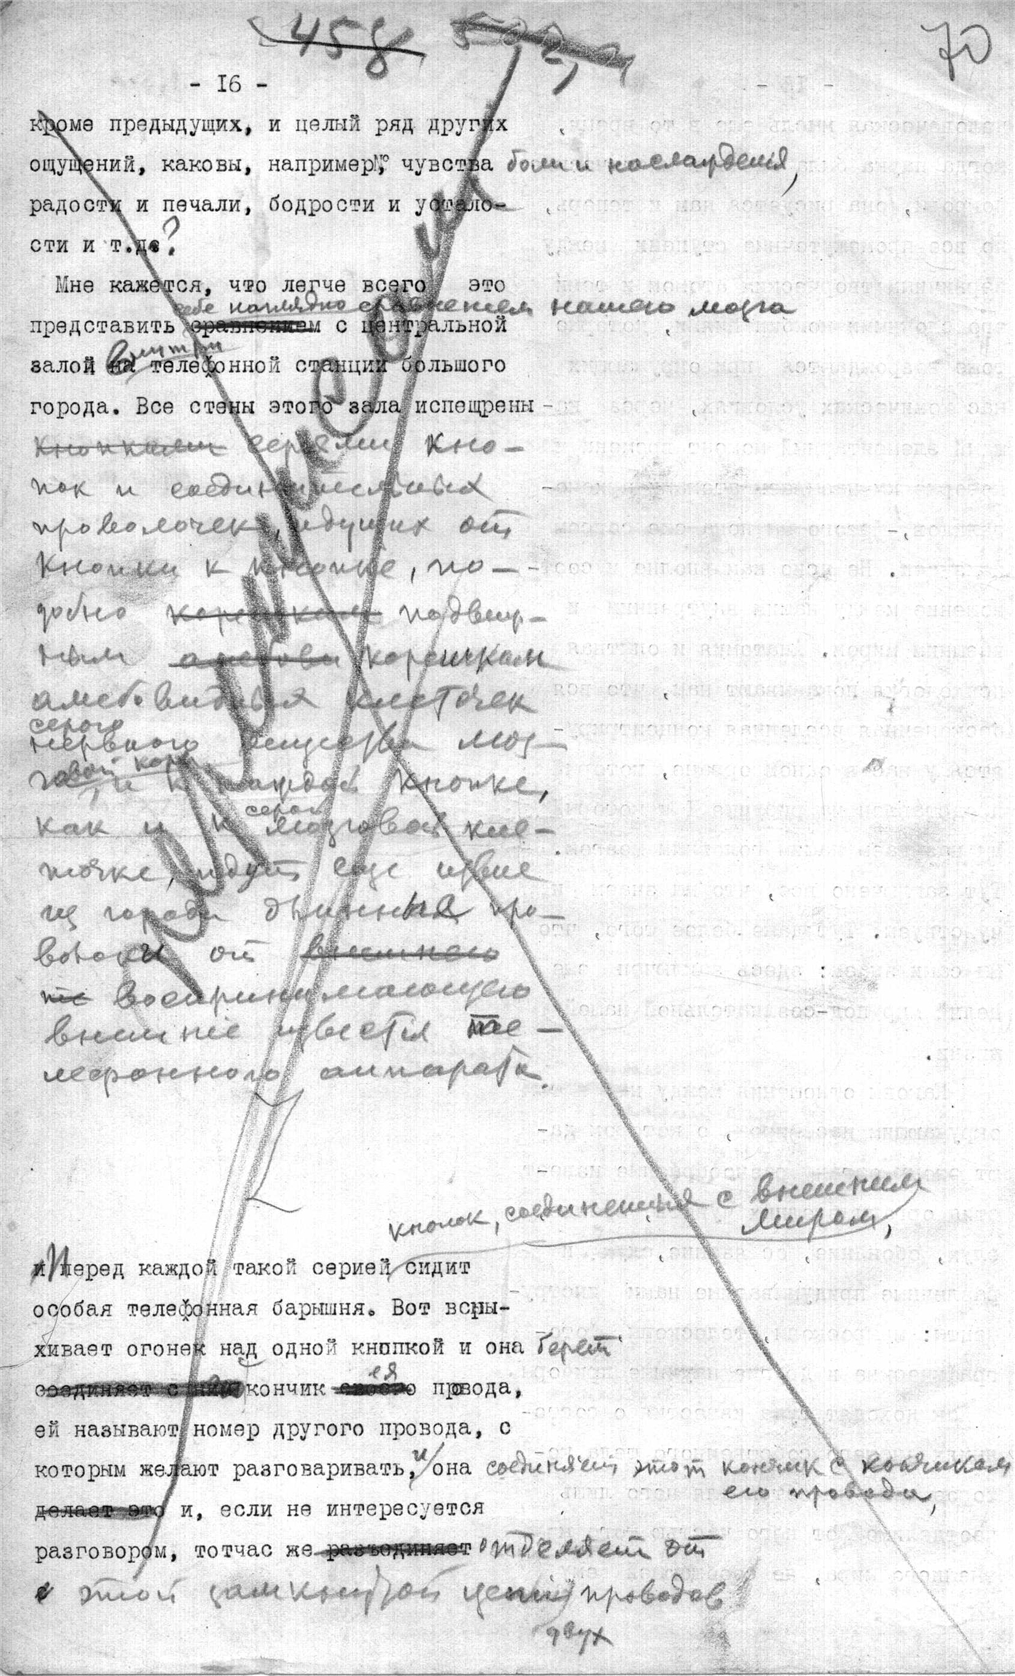 458 502,а 70
- 16 -
кроме предыдущих, и целый ряд других
ощущений, каковы, например, чувства боли и наслаждения,
радости и печали, бодрости и устало-
сти и т.д.?
Мне кажется, что легче всего это
себе наглядно сравнением нашего мозга
представить сравнением с центральной
внутри
залой на телефонной станции большого
города. Все стены этого зала испещрены
кнопками сериями кно-
пок и соединительных
проволочек, идущих от
кнопки к кнопке, по-
добно корешкам
корешкам
амебовидных клеточек
серого
нервного вещества моз-
и к каждой кнопке,
серой
как и к мозговой кле-
точке, идут еще извне
из города длинные про-
волоки от внешнего
воспринимающего
внешние известия теле-
фонного аппарата.
кнопок, соединения с внешним
миром,
И перед каждой такой серией сидит
особая телефонная барышня. Вот вспы-
хивает огонек над одной кнопкой и она берет
соединяет с ним кончик своего ея провода,
ей называют номер другого провода, с
которым желают разговаривать, и она соединяет этот кончик с кончиком
его провода,
делает это и, если не интересуется
разговором, тотчас же разъединяет отделяет от
этой замкнутой цепи проводов
двух